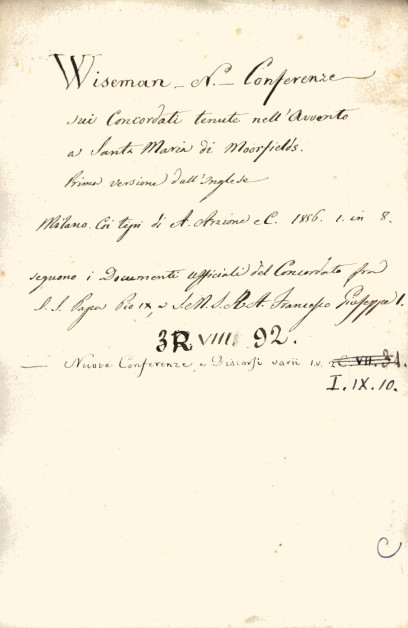 Wiseman - N. - Conferenze
sui Concordati tenute nell'Avvento
a Santa Maria di Moorfields.
Prima versione dall'Inglese
Milano. Coi tipi di A. Arzione e C. 1856. 1. in 8.
seguono i Documenti ufficiali del Concordato fra
S. S. Papa Pio IX, e S. M. I. R. A. Francesco Giuseppe I.
3R VIII 92.
— Nuove Conferenze, e Discorsi varii 1.v. VII. 34.
I. IX. 10.
C